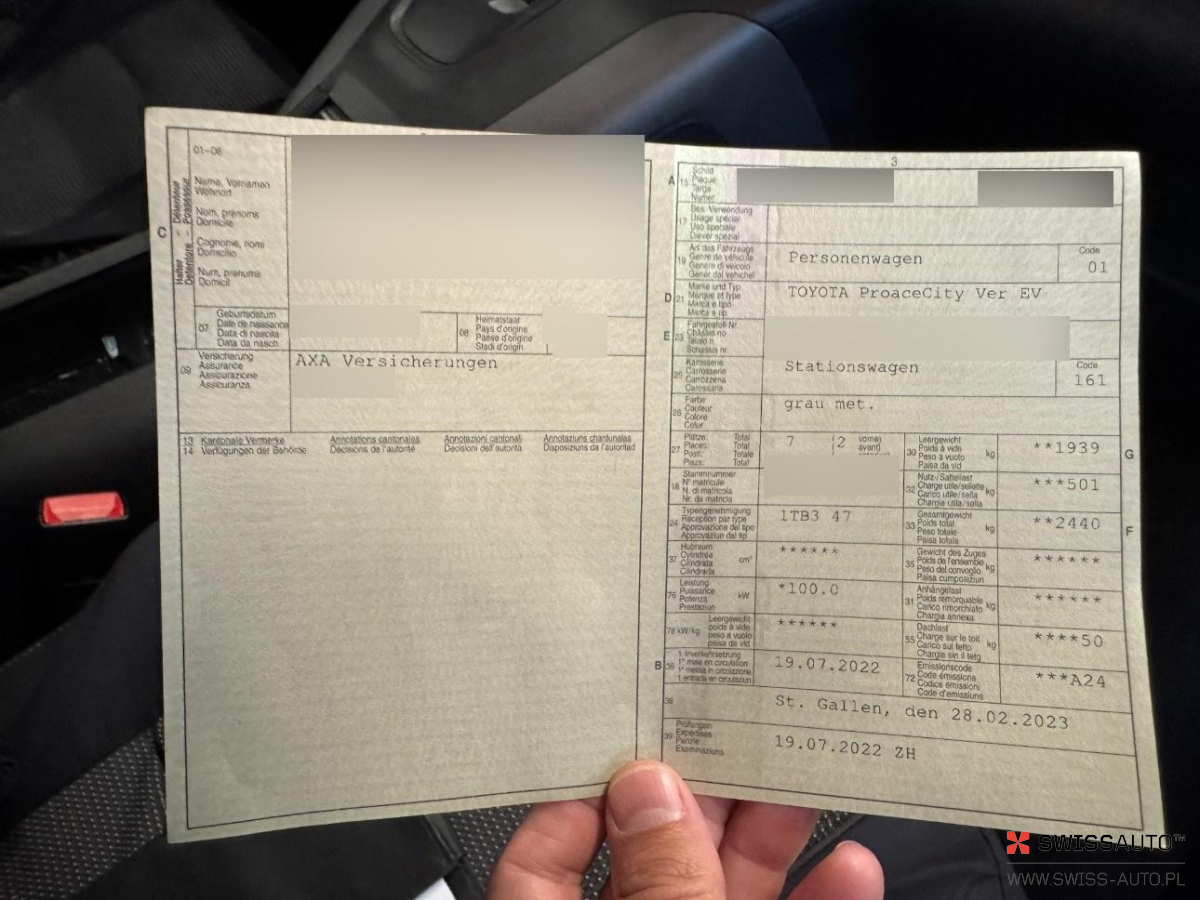 01-06
C
Halter - Détenteur
Detentore - Possessur
Name, Vornamen
Wohnort
Nom, prénoms
Domicile
Cognome, nomi
Domicilio
Num, prenums
Domicil
07
Geburtsdatum
Date de naissance
Data di nascita
Data da nasch.
08
Heimatstaat
Pays d'origine
Paese d'origine
Stadi d'origin
09
Versicherung
Assurance
Assicurazione
Assicuranza
AXA Versicherungen
13 Kantonale Vermerke Annotations cantonales Annotazioni cantonali Annotaziuns chantunalas
14 Verfügungen der Behörde Décisions de l'autorité Decisioni dell'autorità Disposiziuns da l'autoritad
3
A 15
Schild
Plaque
Targa
Numer
17
Bes. Verwendung
Usage spécial
Uso speciale
Diever spezial
19
Art des Fahrzeugs
Genre de véhicule
Genere di veicolo
Gener dal vehichel
Personenwagen
Code
01
D 21
Marke und Typ
Marque et type
Marca e tipo
Marca e tip
TOYOTA ProaceCity Ver EV
E 23
Fahrgestell-Nr.
Châssis no
Telaio n.
Schassis nr.
25
Karosserie
Carrosserie
Carrozzeria
Carossaria
Stationswagen
Code
161
26
Farbe
Couleur
Colore
Colur
grau met.
27
Plätze: Total
Places: Total
Posti: Totale
Plazs: Total
7 (2 vorne)
avant)
30
Leergewicht
Poids à vide
Peso a vuoto
Paisa da vid
kg
**1939
G
18
Stammnummer
N° matricule
N. di matricola
Nr. da matricla
32
Nutz-/Sattellast
Charge utile/sellette
Carico utile/sella
Chargia utila/sella
kg
***501
24
Typengenehmigung
Réception par type
Approvazione del tipo
Approvaziun dal tip
1TB3 47
33
Gesamtgewicht
Poids total
Peso totale
Paisa totala
kg
**2440
F
37
Hubraum
Cylindrée
Cilindrata
Cilindrada
cm³
******
35
Gewicht des Zuges
Poids de l'ensemble
Peso del convoglio
Paisa cumposiziun
kg
******
76
Leistung
Puissance
Potenza
Prestaziun
kW
*100.0
31
Anhängelast
Poids remorquable
Carico rimorchiato
Chargia annexa
kg
******
78 kW/kg
Leergewicht
poids à vide
peso a vuoto
paisa da vid
******
55
Dachlast
Charge sur le toit
Carico sul tetto
Chargia sin il tetg
kg
****50
B 36
1. Inverkehrsetzung
1re mise en circulation
1a messa in circolazione
1. entrada en circulaziun
19.07.2022
72
Emissionscode
Code émissions
Codice emissioni
Code d'emissiuns
***A24
38
St. Gallen, den 28.02.2023
39
Prüfungen
Expertises
Perizie
Examinaziuns
19.07.2022 ZH
SWISSAUTO™
WWW.SWISS-AUTO.PL